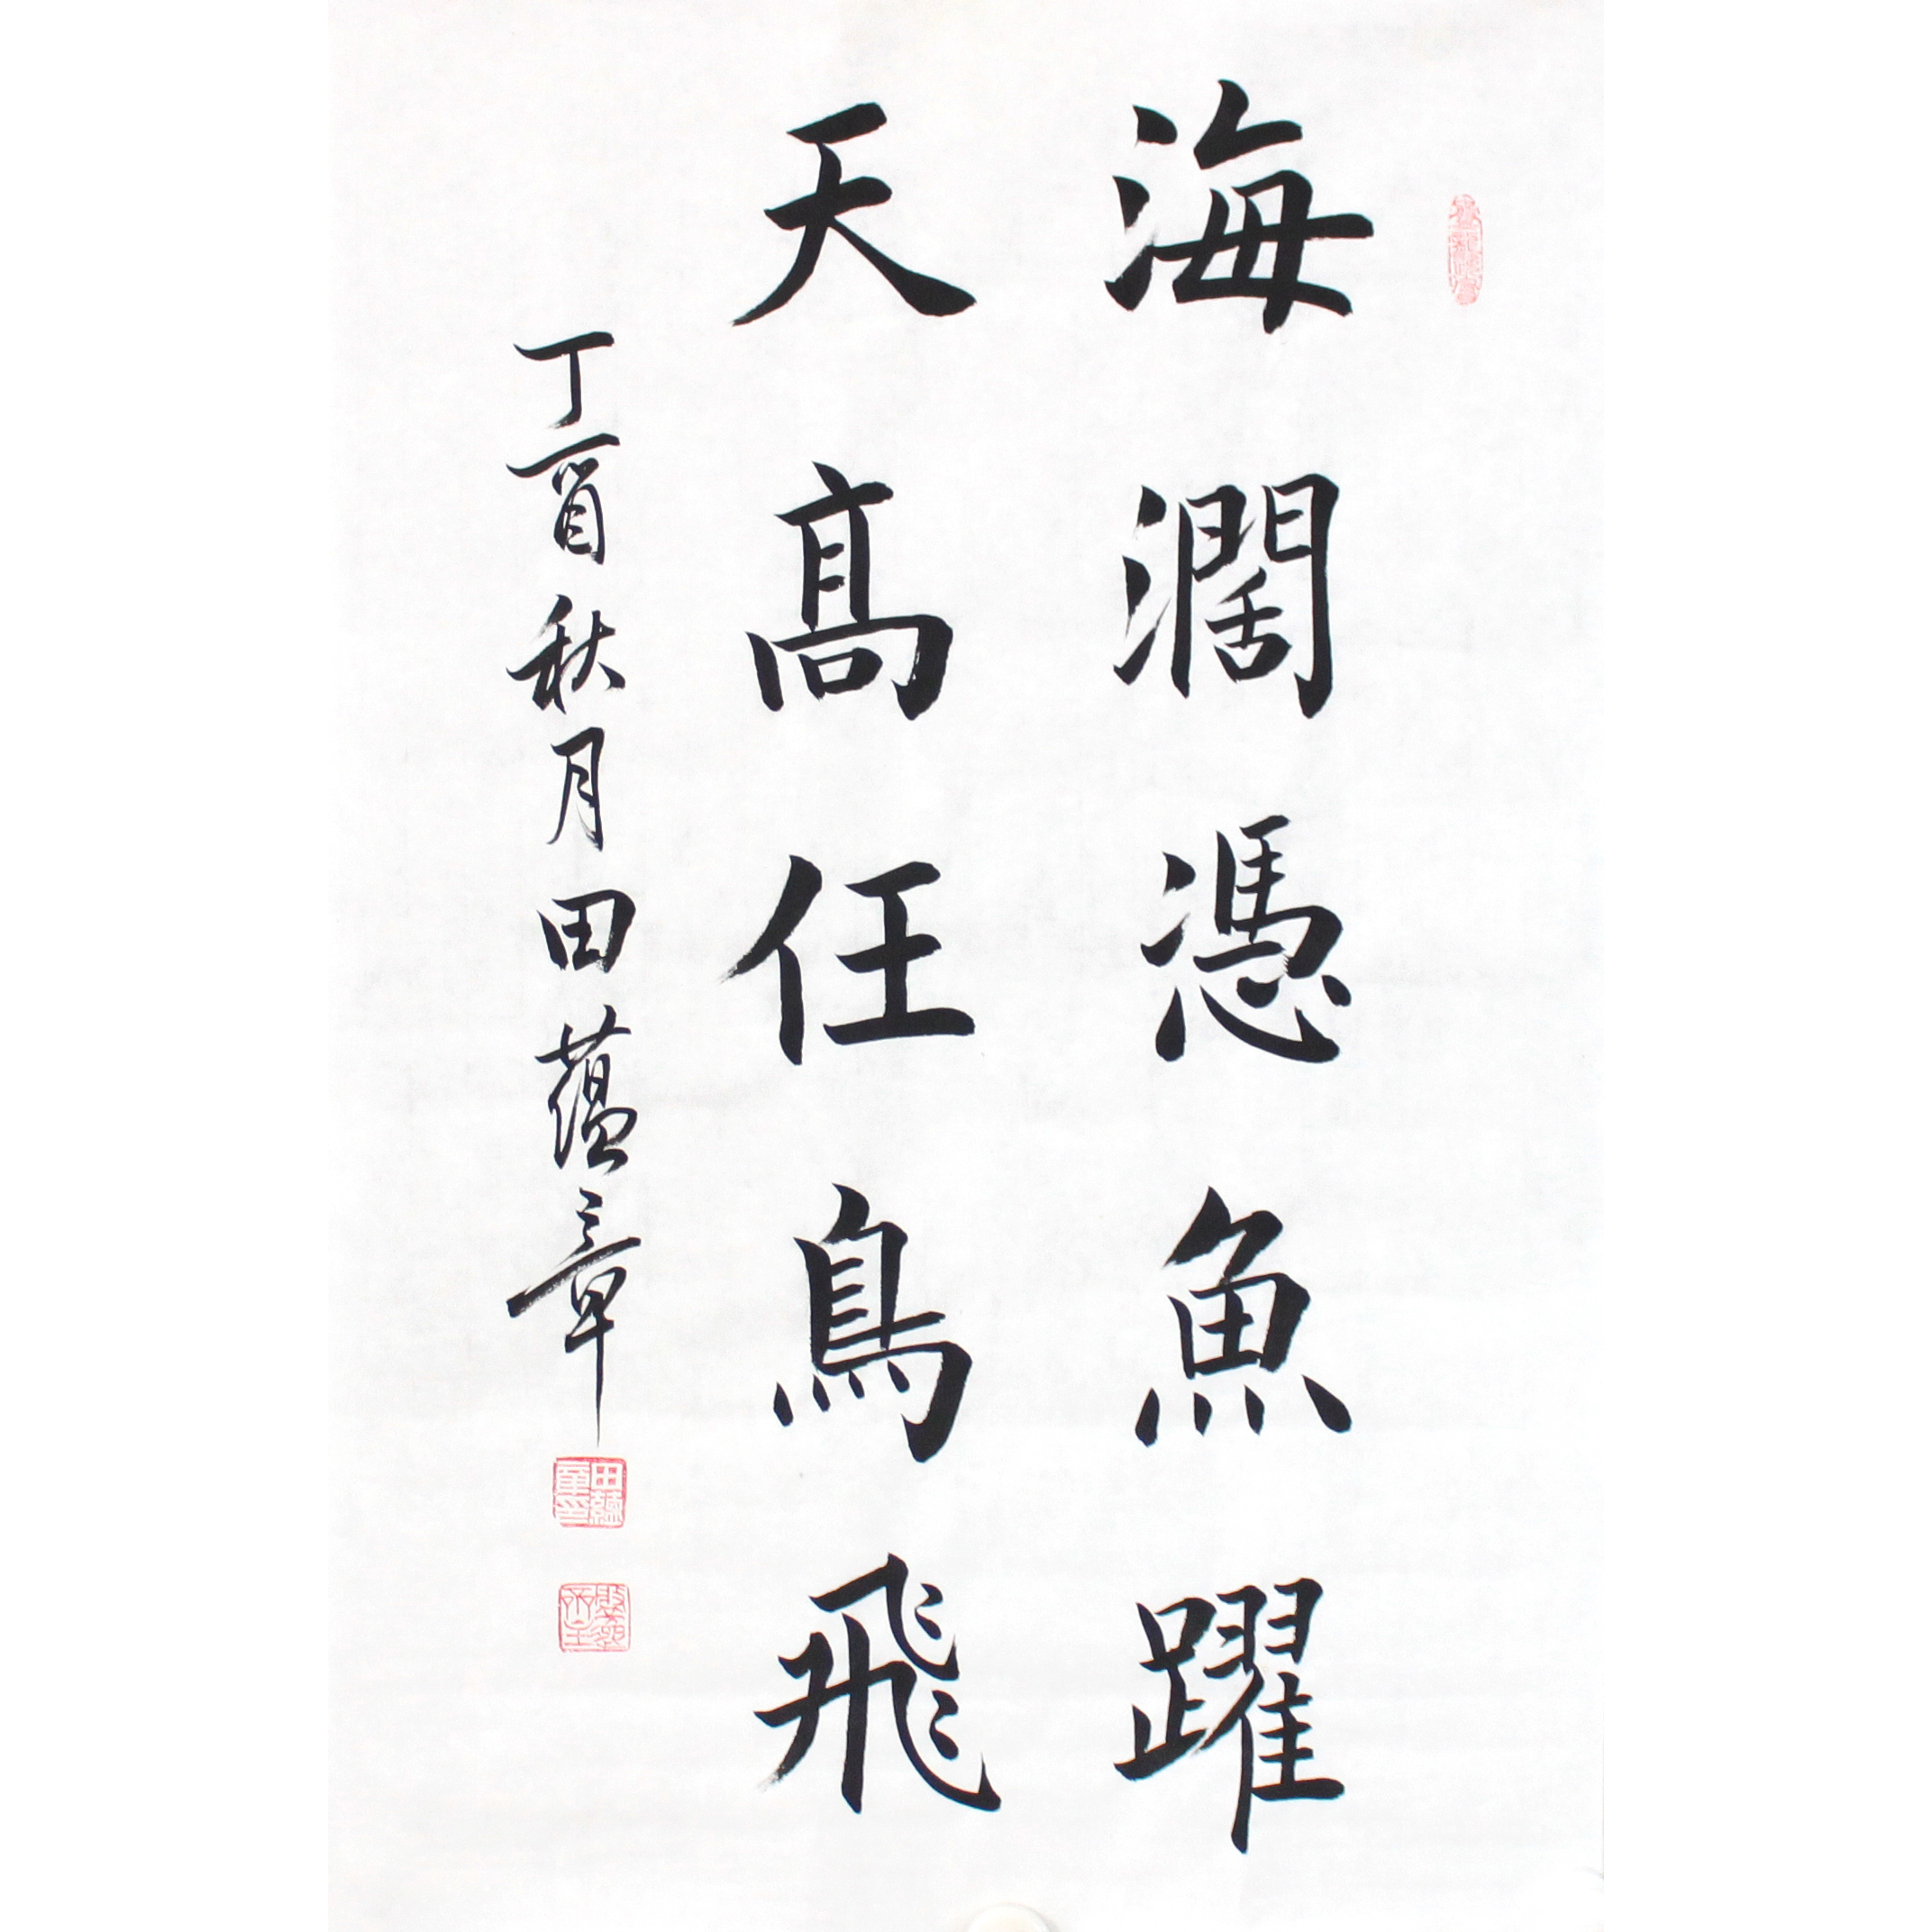 海濶憑魚躍
天髙任鳥飛
丁酉秋月田蘊章
田蘊章印